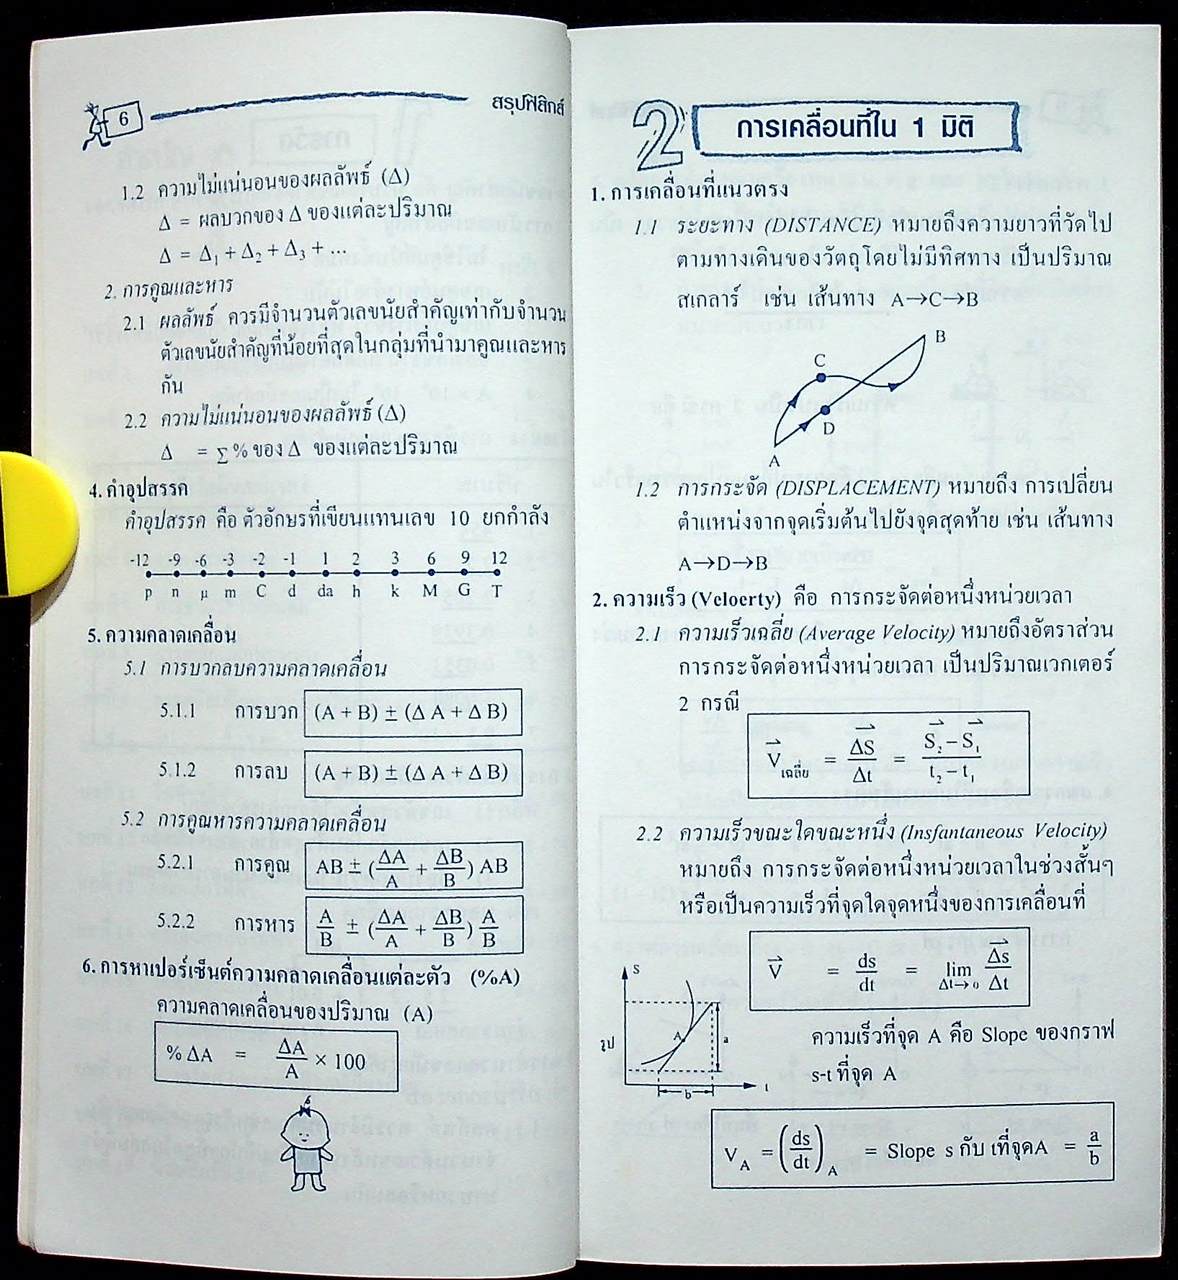 6
สรุปฟิสิกส์
1.2 ความไม่แน่นอนของผลลัพธ์ (Δ)
Δ = ผลบวกของ Δ ของแต่ละปริมาณ
Δ = Δ₁ + Δ₂ + Δ₃ + ...
2. การคูณและหาร
2.1 ผลลัพธ์ ควรมีจำนวนตัวเลขนัยสำคัญเท่ากับจำนวน
ตัวเลขนัยสำคัญที่น้อยที่สุดในกลุ่มที่นำมาคูณและหาร
กัน
2.2 ความไม่แน่นอนของผลลัพธ์ (Δ)
Δ = Σ % ของ Δ ของแต่ละปริมาณ
4. คำอุปสรรค
คำอุปสรรค คือ ตัวอักษรที่เขียนแทนเลข 10 ยกกำลัง
-12 -9 -6 -3 -2 -1 1 2 3 6 9 12
p n μ m C d da h k M G T
5. ความคลาดเคลื่อน
5.1 การบวกลบความคลาดเคลื่อน
5.1.1 การบวก (A + B) ± (Δ A + Δ B)
5.1.2 การลบ (A + B) ± (Δ A + Δ B)
5.2 การคูณหารความคลาดเคลื่อน
5.2.1 การคูณ AB ± (ΔA/A + ΔB/B) AB
5.2.2 การหาร A/B ± (ΔA/A + ΔB/B) A/B
6. การหาเปอร์เซ็นต์ความคลาดเคลื่อนแต่ละตัว (%A)
ความคลาดเคลื่อนของปริมาณ (A)
% ΔA = ΔA/A × 100
2 การเคลื่อนที่ใน 1 มิติ
1. การเคลื่อนที่แนวตรง
1.1 ระยะทาง (DISTANCE) หมายถึงความยาวที่วัดไป
ตามทางเดินของวัตถุโดยไม่มีทิศทาง เป็นปริมาณ
สเกลาร์ เช่น เส้นทาง A→C→B
B
C
D
A
1.2 การกระจัด (DISPLACEMENT) หมายถึง การเปลี่ยน
ตำแหน่งจากจุดเริ่มต้นไปยังจุดสุดท้าย เช่น เส้นทาง
A→D→B
2. ความเร็ว (Veloerty) คือ การกระจัดต่อหนึ่งหน่วยเวลา
2.1 ความเร็วเฉลี่ย (Average Velocity) หมายถึงอัตราส่วน
การกระจัดต่อหนึ่งหน่วยเวลา เป็นปริมาณเวกเตอร์
2 กรณี
V⃗ เฉลี่ย = ΔS⃗/Δt = (S⃗₂ – S⃗₁)/(t₂ – t₁)
2.2 ความเร็วขณะใดขณะหนึ่ง (Insfantaneous Velocity)
หมายถึง การกระจัดต่อหนึ่งหน่วยเวลาในช่วงสั้นๆ
หรือเป็นความเร็วที่จุดใดจุดหนึ่งของการเคลื่อนที่
V⃗ = ds/dt = lim Δt→0 Δs⃗/Δt
s
รูป
A
a
b
t
ความเร็วที่จุด A คือ Slope ของกราฟ
s-t ที่จุด A
V_A = (ds/dt)_A = Slope s กับ tที่จุดA = a/b